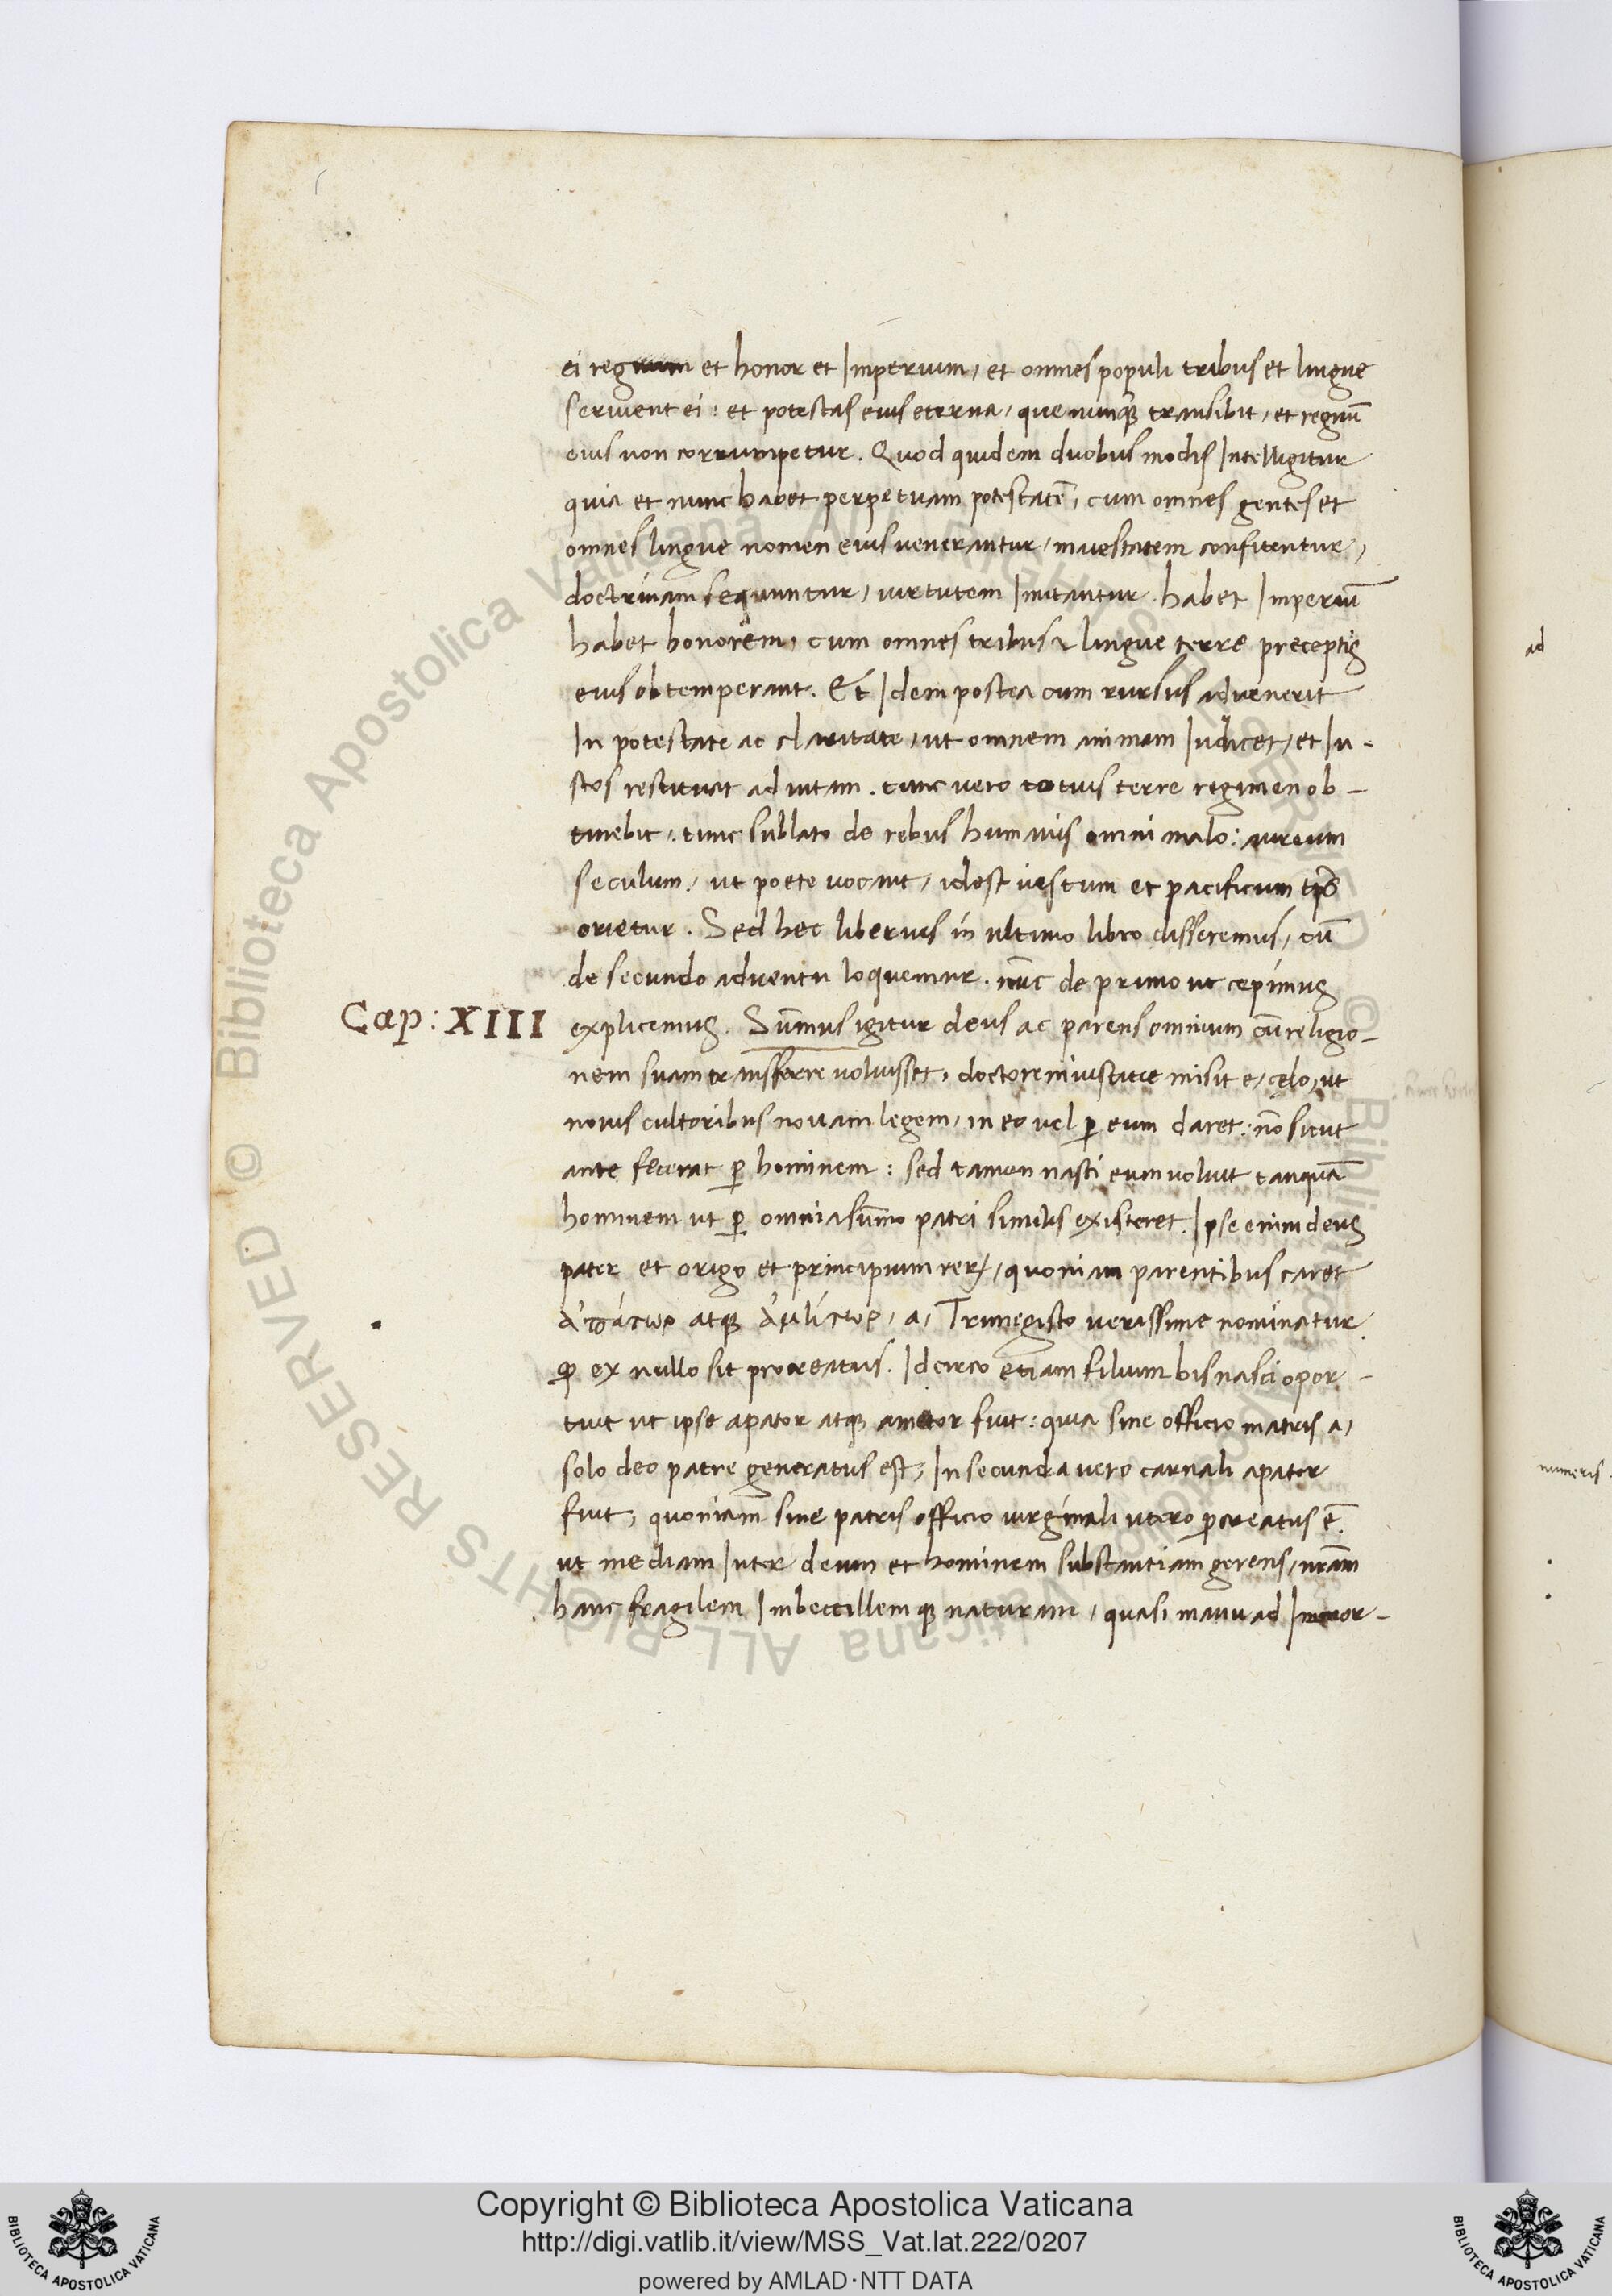 ei regnum et honor et Imperium, et omnes populi tribus et lingue
servient ei: et potestas eius eterna, que nunq̃ transibit, et regnũ
eius non corrumpetur. Quod quidem duobus modis Intelligitur
quia et nunc habet perpetuam potestatẽ, cum omnes gentes et
omnes lingue nomen eius venerantur, maiestatem confitentur,
doctrinam sequuntur, virtutem Imitantur. habet Imperiũ
habet honorem, cum omnes tribus & lingue terre preceptis
eius obtemperant. Et Idem postea cum rursus advenerit
In potestate ac claritate, ut omnem animam Iudicet, et Iu-
stos restituat ad vitam. tunc vero totius terre regimen ob-
tinebit, tunc sublato de rebus humanis omni malo: aureum
seculum, ut poete vocant, idest iustum et pacificum tp̃s
orietur. Sed hec liberius in ultimo libro disseremus, cũ
de secundo adventu loquemur. nũc de primo ut cepimus
Cap: XIII explicemus. Sũmus igitur deus ac parens omnium cũ religio-
nem suam transferre voluisset, doctorem iustitie misit e, celo, ut
novis cultoribus novam legem, in eo vel ꝑ eum daret: nõ sicut
ante fecerat ꝑ hominem: sed tamen nasci eum voluit tanquã
hominem ut ꝑ omnia sũmo patri similis existeret. Ipse enim deus
pater et origo et principium rerꝝ, quoniam parentibus caret
ἀπάτωρ atqꝫ ἀμήτωρ, a, Trimegisto verissime nominatur
ꝙ ex nullo sit procreatus. Idcirco etiam filium bis nasci opor-
tuit ut ipse apator atqꝫ ametor fuit: quia sine officio matris a,
solo deo patre generatus est, In secunda vero carnali apator
fuit, quoniam sine patris officio virginali utero ꝓcreatus ẽ.
ut mediam Inter deum et hominem substantiam gerens, nr̃am
hanc fragilem Imbecillemqꝫ naturam, quasi manu ad Immor-
ad
numeris
Copyright © Biblioteca Apostolica Vaticana
http://digi.vatlib.it/view/MSS_Vat.lat.222/0207
powered by AMLAD·NTT DATA
BIBLIOTECA APOSTOLICA VATICANA
BIBLIOTECA APOSTOLICA VATICANA
© Biblioteca Apostolica Vaticana ALL RIGHTS RESERVED
© Biblioteca Apostolica Vaticana ALL RIGHTS RESERVED